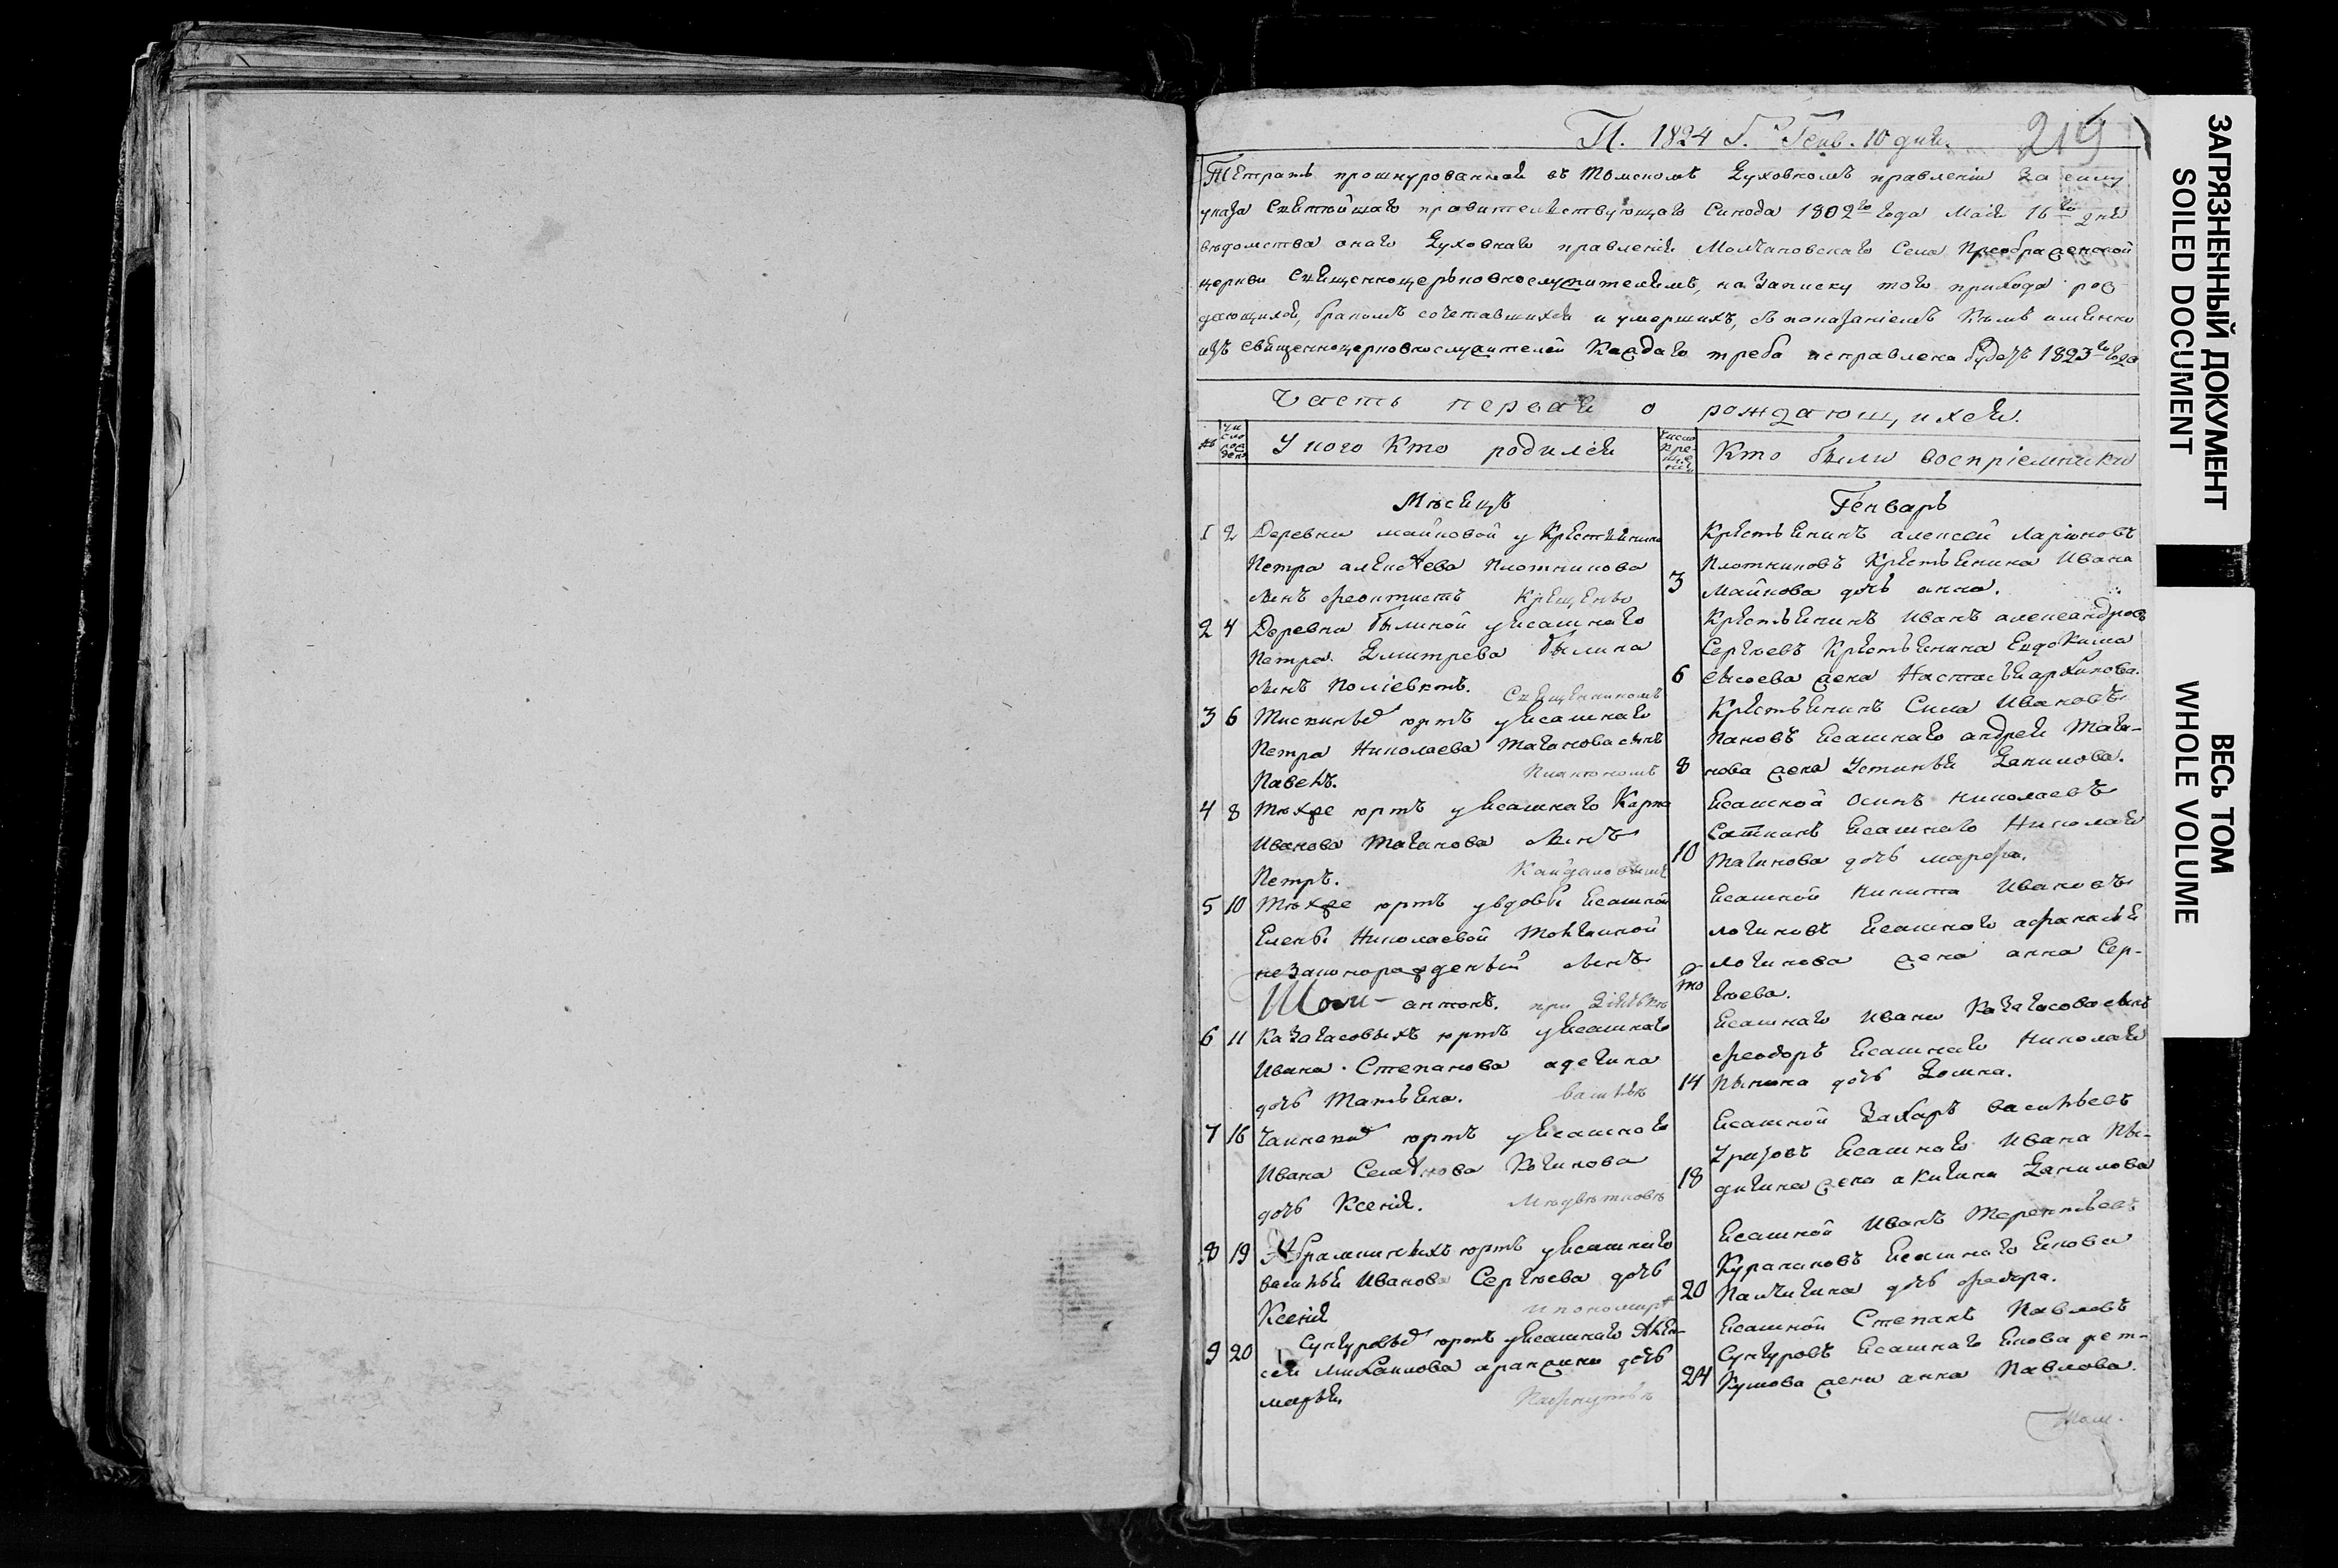 П. 1824 г. Генв. 10 дня.
219
Тетрать прошнурованная въ Томскомъ Духовномъ правленіи за силу
указа Святейшаго правительствующаго Синода 1802го года Маія 16го дня
вѣдомства онаго Духовнаго правленія Молчановскаго Села Преображенской
церкви Священноцерьковнослужителямъ, на Записку того прихода рож-
дающихся, бракомъ сочетавшихся и умершихъ, съ показаніемъ Кѣмъ именно
изъ священноцерковнослужителей Каждаго треба исправлена будетъ 1823го года
Часть первая о рождающихся.
№ Число рожденія У кого Кто родился Число Крещенія Кто были воспріемники
Мѣсяцъ Генварь
1 2 Деревни майковой у Крестьянина
Петра алексеева Плотникова
сынъ феоктистъ Крещены
3
Крестьянинъ алексей Ларіоновъ
Плотниковъ Крестьянина Ивана
Майкова дочь анна.
2 4 Деревни былиной у Ясашнаго
Петра Дмитрева былина
сынъ Поліевктъ. Священникомъ
6
Крестьянинъ Иванъ александровъ
Сергѣевъ Крестьянина Евдокима
Сысоева жена Настасья архипова.
3 6 юртъ у Ясашнаго
Петра Николаева Тагинова сынъ
Павелъ.
8
Крестьянинъ Сила Ивановъ
Пановъ Ясашнаго андрея Таги-
нова жена Устинья Данилова.
4 8 юртъ у Ясашнаго Карпа
Иванова Тагинова сынъ
Петръ. Кайдаловымъ
10
Ясашной Осипъ Николаевъ
Ясашнаго Николая
Тагинова дочь марфа.
5 10 юртъ у вдовы Ясашной
Елены Николаевой
незаконорожденый сынъ
антонъ. при Дьячкѣ
Ясашной Никита Ивановъ
логиновъ Ясашного афанасья
логинова жена анна Сер-
гѣева.
6 11 Казагасовыхъ юртъ у Ясашнаго
Ивана Степанова адегина
дочь Татьяна. Васильѣ
14
Ясашнаго Ивана Казагасова сынъ
феодоръ Ясашнаго Николая
дочь Домна.
7 16 юртъ у Ясашнаго
Ивана
дочь Ксенія.
18
Ясашной Захаръ Васильевъ
Ясашнаго Ивана
жена акилина Данилова
8 19 юртъ у Ясашнаго
Василья Иванова Сергѣева дочь
Ксенія
20
Ясашной Иванъ Терентьевъ
Ясашнаго Якова
дочь
9 20 юртъ у Ясашнаго Алек-
сея Михайлова дочь
марья.
24
Ясашной Степанъ Павловъ
Сунгуровъ Ясашнаго Якова
жена анна Павлова.
Том.
ЗАГРЯЗНЕННЫЙ ДОКУМЕНТ
SOILED DOCUMENT
ВЕСЬ ТОМ
WHOLE VOLUME